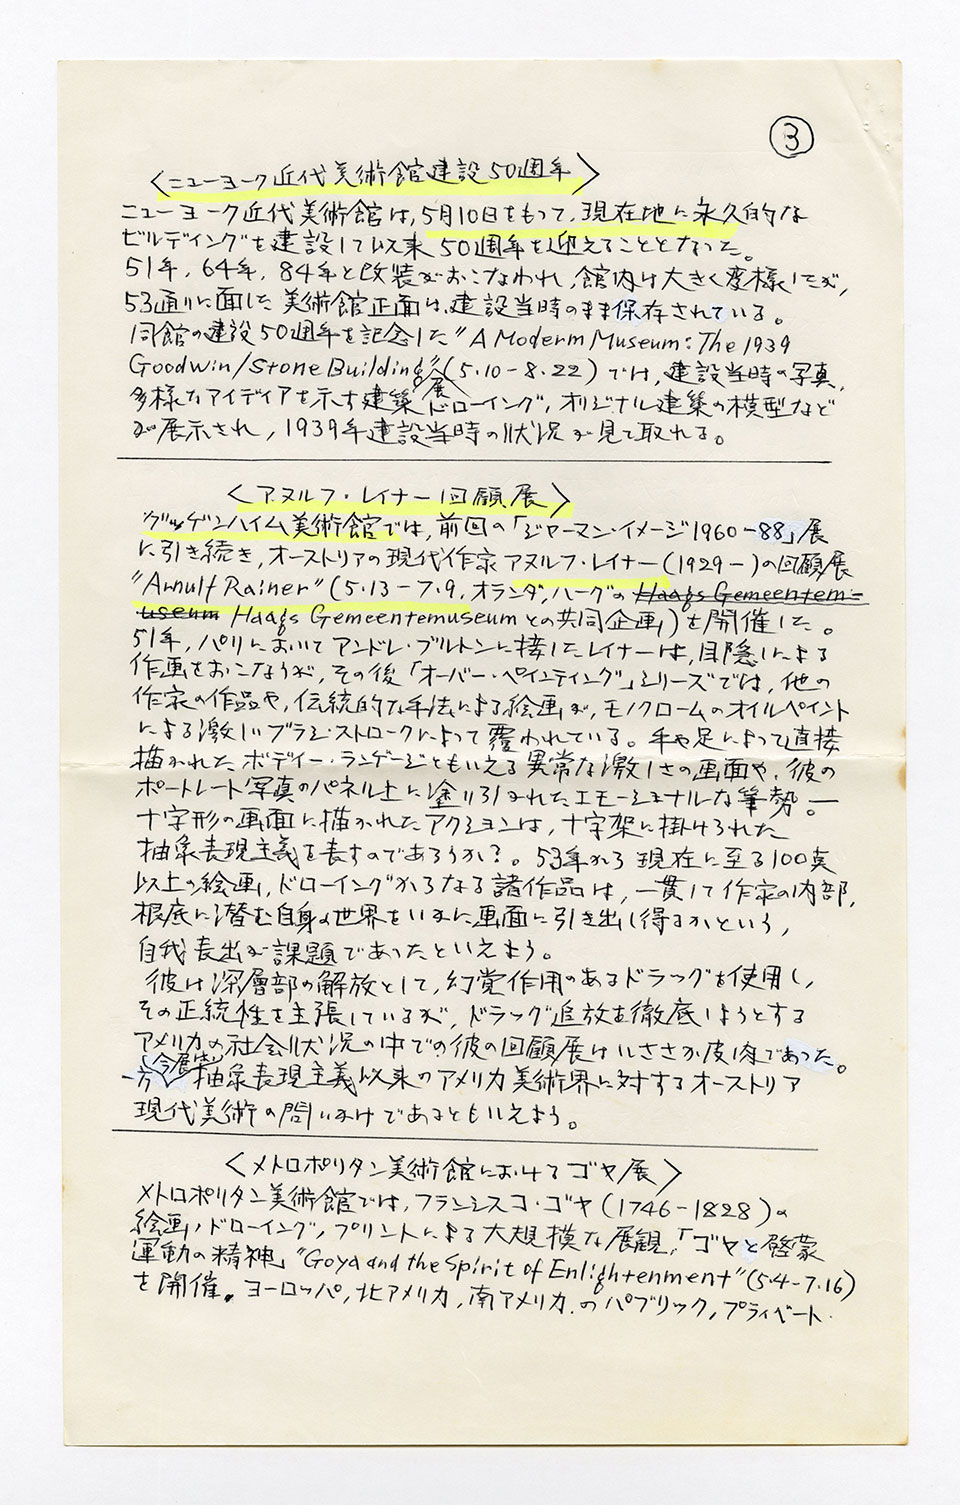 ③
〈ニューヨーク近代美術館建設50週年〉
ニューヨーク近代美術館は,5月10日をもって,現在地に永久的な
ビルディングを建設して以来50週年を迎えることとなった。
51年,64年,84年と改装がおこなわれ,館内は大きく変様したが,
53通りに面した美術館正面は,建設当時のまま保存されている。
同館の建設50週年を記念した"A Moderm Museum: The 1939
Goodwin/Stone Building"展(5.10-8.22)では,建設当時の写真,
多様なアイディアを示す建築ドローイング,オリジナル建築の模型など
が展示され,1939年建設当時の状況が見て取れる。
〈アヌルフ・レイナー回顧展〉
グッゲンハイム美術館では,前回の「ジャーマン・イメージ1960-88」展
に引き続き,オーストリアの現代作家アヌルフ・レイナー(1929-)の回顧展
"Arnulf Rainer"(5.13-7.9,オランダ,ハーグの Haags Gemeentem=
useum Haags Gemeentemuseumとの共同企画)を開催した。
51年,パリにおいてアンドレ・ブルトンに接したレイナーは,目隠しによる
作画をおこなうが,その後「オーバー・ペインティング」シリーズでは,他の
作家の作品や,伝統的な手法による絵画が,モノクロームのオイルペイント
による激しいブラシ・ストロークによって覆われている。手や足によって直接
描かれたボディー・ランゲージともいえる異常な激しさの画面や,彼の
ポートレート写真のパネル上に塗り引かれたエモーショナルな筆勢。―
十字形の画面に描かれたアクションは,十字架に掛けられた
抽象表現主義を表すのであろうか?。53年から現在に至る100点
以上の絵画,ドローイングからなる諸作品は,一貫して作家の内部,
根底に潜む自身の世界をいかに画面に引き出し得るかという,
自我表出が課題であったといえよう。
彼は深層部の解放として,幻覚作用のあるドラッグを使用し,
その正統性を主張しているが,ドラッグ追放を徹底しようとする
アメリカの社会状況の中での彼の回顧展はいささか皮肉であった。
一方今展は,抽象表現主義以来のアメリカ美術界に対するオーストリア
現代美術の問いかけであるともいえよう。
〈メトロポリタン美術館におけるゴヤ展〉
メトロポリタン美術館では,フランシスコ・ゴヤ(1746-1828)の
絵画,ドローイング,プリントによる大規模な展観,「ゴヤと啓蒙
運動の精神」"Goya and the Spirit of Enlightenment"(5.4-7.16)
を開催。ヨーロッパ,北アメリカ,南アメリカ.のパブリック,プライベート.